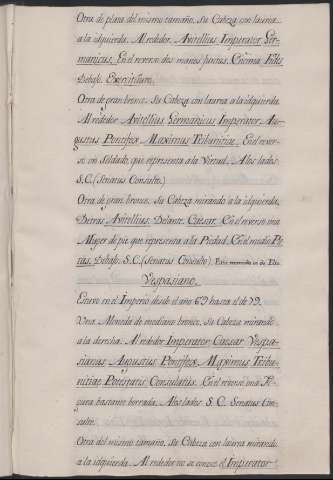 Otra de plata del mismo tamaño. Su Cabeza con laurea
a la izquierda. Alrededor. Avitellius Imperator Ger-
manicus. En el reverso dos manos juntas. Encima. Fides
Debajo. Exercituum.
Otra de gran bronce. Su Cabeza con laurea a la izquierda.
Alrededor Avitellius Germanicus Imperator Au-
gustus Pontifex Maximus Tribunitiae. En el rever-
so un Soldado, que representa a la Virtud. A los lados
S.C. (Senatus Consulto.)
Otra de gran bronce. Su Cabeza mirando a la izquierda.
Detras Avitellius. Delante. Caesar. En el reverso una
Muger de pie que representa a la Piedad. En el medio Pie-
tas. Debajo. S.C. (Senatus Consulto). Esta moneda es de
Vespasiano.
Estuvo en el Imperio desde el año 69 hasta el de 79.
Una Moneda de mediano bronce. Su Cabeza mirando
a la derecha. Alrededor Imperator Caesar Vespa-
sianus Augustus Pontifex Maximus Tribu-
nitiae Potestatis Consulatus. En el reverso una Fi-
gura bastante borrada. A los lados S. C. Senatus Con-
sulto.
Otra del mismo tamaño. Su Cabeza con laurea mirando
a la izquierda. Alrededor no se conoce el Imperator